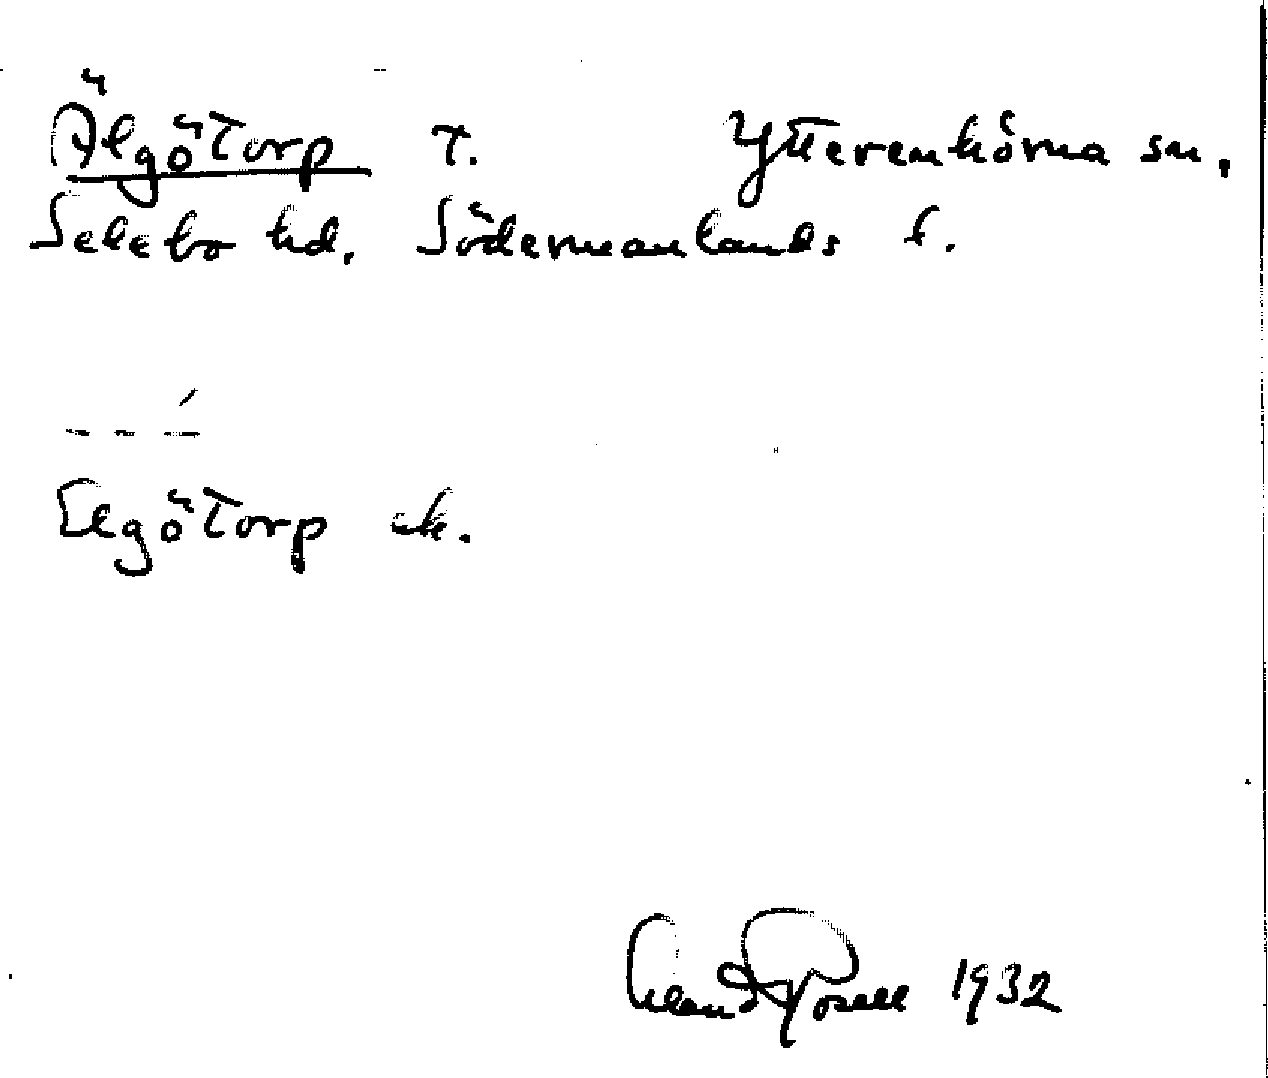 Älgötorp T. Ytterenhörna sn.
Selebo hd. Södermanlands l.
Elgötorp ek.
1932